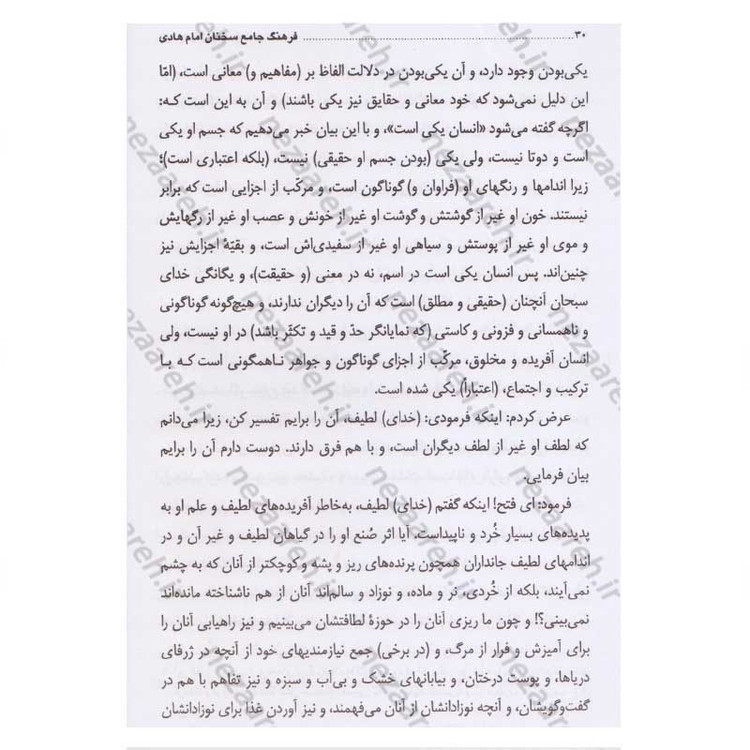 ۳۰ ........ فرهنگ جامع سخنان امام هادی
یکی‌بودن وجود دارد، و آن یکی‌بودن در دلالت الفاظ بر (مفاهیم و) معانی است، (امّا
این دلیل نمی‌شود که خود معانی و حقایق نیز یکی باشند) و آن به این است کـه:
اگرچه گفته می‌شود «انسان یکی است»، و با این بیان خبر می‌دهیم که جسم او یکی
است و دوتا نیست، ولی یکی (بودن جسم او حقیقی) نیست، (بلکه اعتباری است)؛
زیرا اندامها و رنگهای او (فراوان و) گوناگون است، و مرکّب از اجزایی است که برابر
نیستند. خون او غیر از گوشتش و گوشت او غیر از خونش و عصب او غیر از رگهایش
و موی او غیر از پوستش و سیاهی او غیر از سفیدی‌اش است، و بقیّهٔ اجزایش نیز
چنین‌اند. پس انسان یکی است در اسم، نه در معنی (و حقیقت)، و یگانگی خدای
سبحان آنچنان (حقیقی و مطلق) است که آن را دیگران ندارند، و هیچ‌گونه گوناگونی
و ناهمسانی و فزونی و کاستی (که نمایانگر حدّ و قید و تکثّر باشد) در او نیست، ولی
انسان آفریده و مخلوق، مرکّب از اجزای گوناگون و جواهر نـاهمگونی است کـه بـا
ترکیب و اجتماع، (اعتباراً) یکی شده است.
عرض کردم: اینکه فرمودی: (خدای) لطیف، آن را برایم تفسیر کن، زیرا می‌دانم
که لطف او غیر از لطف دیگران است، و با هم فرق دارند. دوست دارم آن را برایم
بیان فرمایی.
فرمود: ای فتح! اینکه گفتم (خدای) لطیف، به‌خاطر آفریده‌های لطیف و علم او به
پدیده‌های بسیار خُرد و ناپیداست. آیا اثر صُنع او را در گیاهان لطیف و غیر آن و در
اندامهای لطیف جانداران همچون پرنده‌های ریز و پشه و کوچکتر از آنان که به چشم
نمی‌آیند، بلکه از خُردی، نر و ماده، و نوزاد و سالم‌اند آنان از هم ناشناخته مانده‌اند
نمی‌بینی؟! و چون ما ریزی آنان را در حوزهٔ لطافتشان می‌بینیم و نیز راهیابی آنان را
برای آمیزش و فرار از مرگ، و (در برخی) جمع نیازمندیهای خود از آنچه در ژرفای
دریاها، و پوست درختان، و بیابانهای خشک و بی‌آب و سبزه و نیز تفاهم با هم در
گفت‌وگویشان، و آنچه نوزادانشان از آنان می‌فهمند، و نیز آوردن غذا برای نوزادانشان
nezaareh.ir